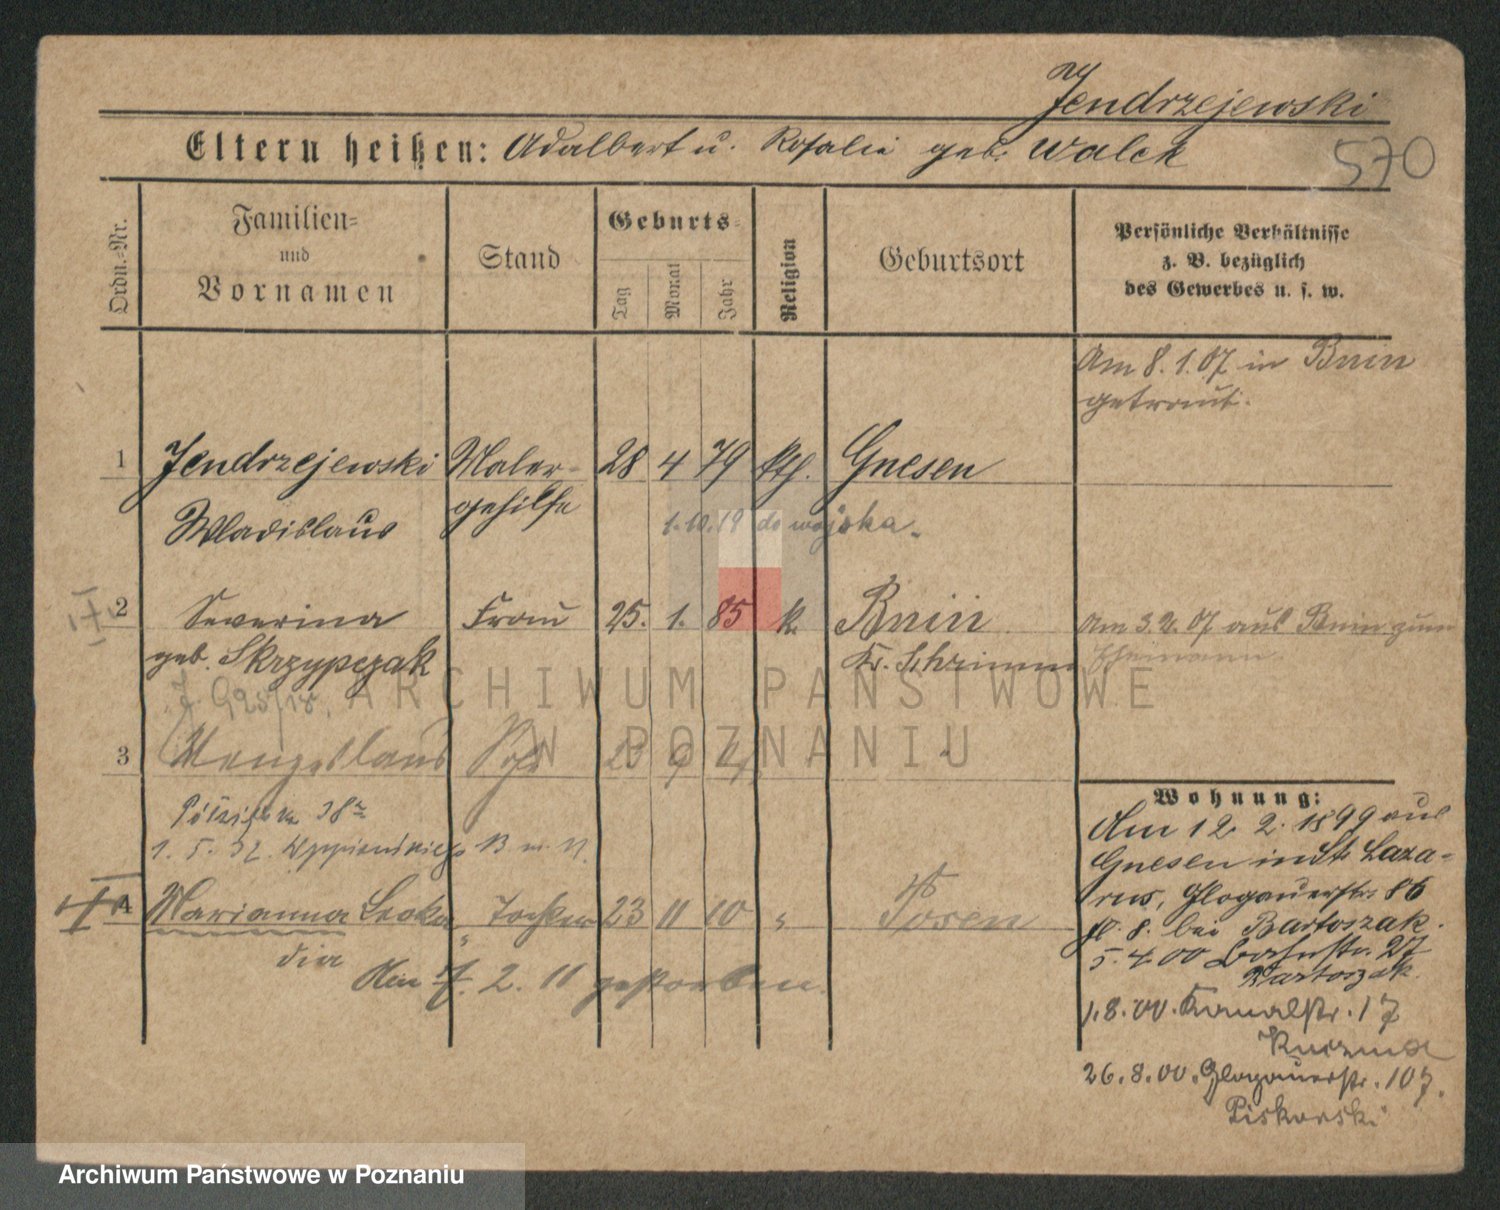 Jendrzejewski
Eltern heißen: Adalbert u. Rosalie geb. Walek
570
Ordn.-Nr.
Familien-
und
Vornamen
Stand
Geburts-
Tag
Monat
Jahr
Religion
Geburtsort
Persönliche Verhältnisse
z. B. bezüglich
des Gewerbes u. s. w.
Am 8.1.07 in Bnin
getraut.
1 Jendrzejewski Maler- 28 4 79 kth. Gnesen
Wladislaus gehilfe
1.10.19 do wojska.
2 Severina Frau 25. 1. 85 k. Bnin
geb. Skrzypczak Kr. Schrimm
Am 3.2.07 aus Bnin zum
Ehemann.
J. 925/18.
ARCHIWUM PAŃSTWOWE
W POZNANIU
3 9
38
1. 5. 32. B m. 11.
4 Marianna Leoka Tochter 23 11 10 " Posen
dia
7. 2. 11 gestorben.
Wohnung:
Am 12. 2. 1899 aus
Gnesen in St. Laza-
rus, Glogauerstr. 86
bei Bartoszak.
5.4.00 Bahnstr. 27
Bartoszak
1.8.00. Kanalstr. 17
26.8.00. Glogauerstr. 107.
Piskorski
Archiwum Państwowe w Poznaniu